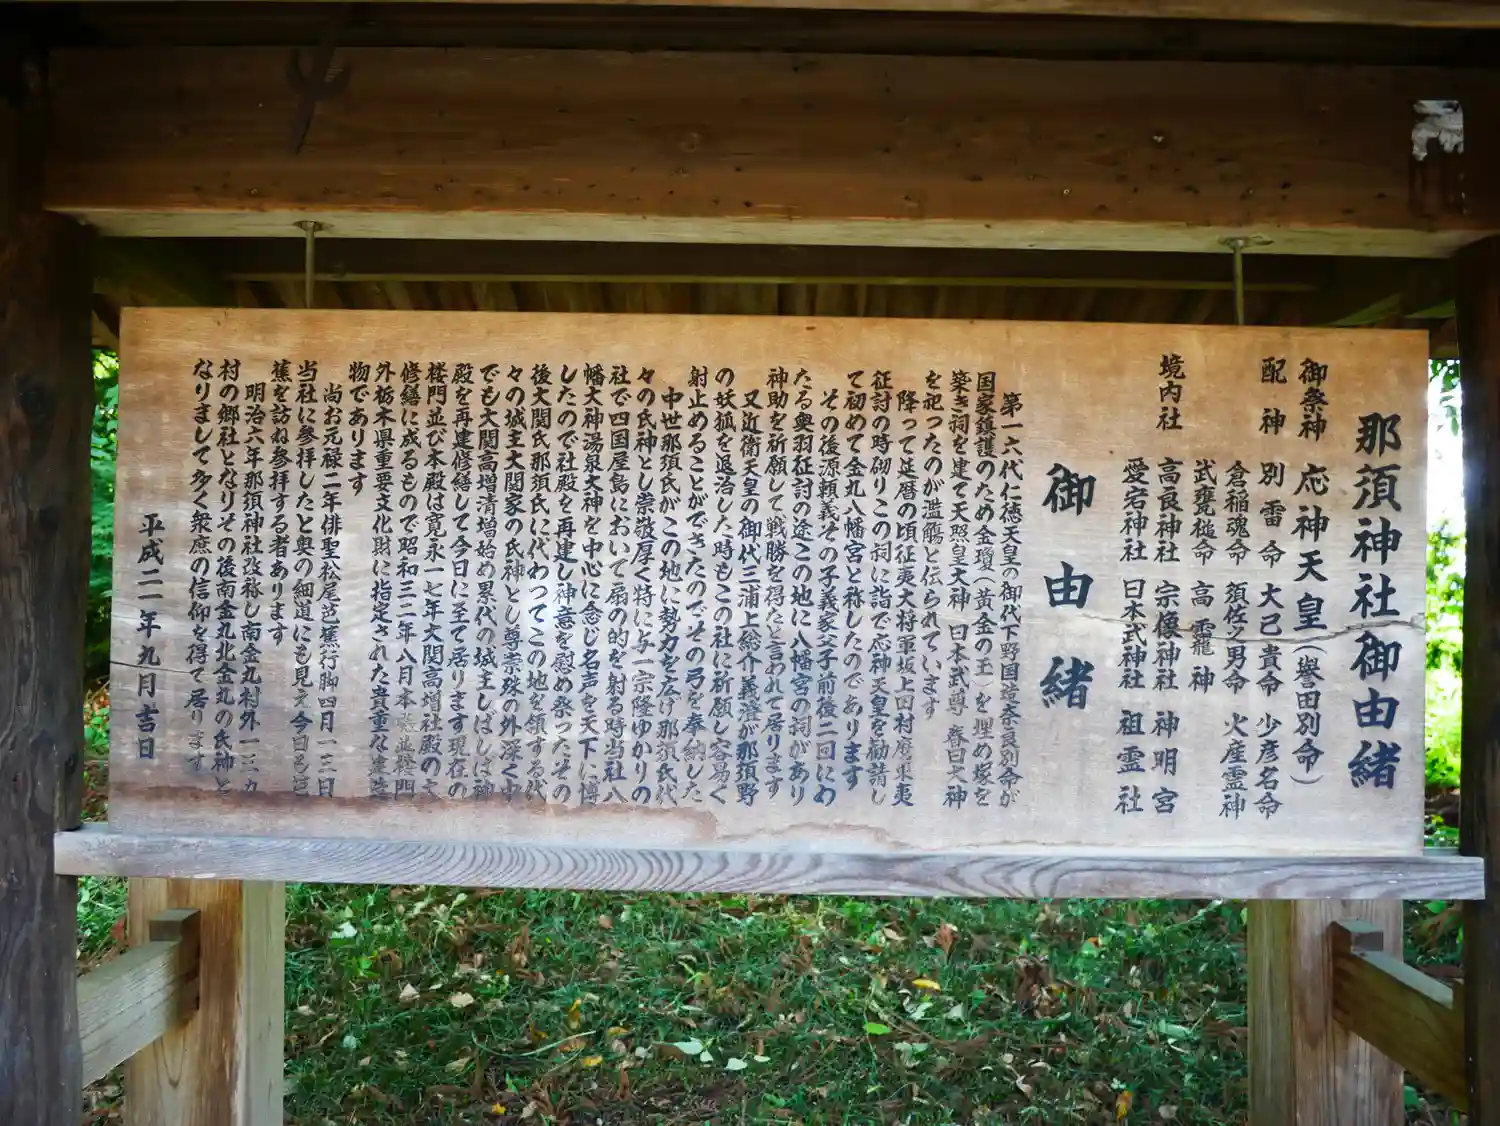 那須神社御由緒
御祭神 応神天皇(誉田別命)
配神 別雷命 大己貴命 少彦名命
倉稲魂命 須佐之男命 火産霊神
武甕槌命 高龗神
境内社 高良神社 宗像神社 神明宮
愛宕神社 日本武神社 祖霊社
御由緒
第一六代仁徳天皇の御代下野国造奈良別命が
国家鎮護のため金瓊(黄金の玉)を埋め塚を
築き祠を建て天照皇大神 日本武尊 春日大神
を祀ったのが濫觴と伝られています
降って延暦の頃征夷大将軍坂上田村麿東夷
征討の時砌りこの祠に詣で応神天皇を勧請し
て初めて金丸八幡宮と称したのであります
その後源頼義その子義家父子前後二回にわ
たる奥羽征討の途この地に八幡宮の祠があり
神助を祈願して戦勝を得たと言われて居ります
又近衛天皇の御代三浦上総介義澄が那須野
の妖狐を退治した時もこの社に祈願し容易く
射止めることができたのでその弓を奉納した
中世那須氏がこの地に勢力を広げ那須氏代
々の氏神とし崇敬厚く特に与一宗隆ゆかりの
社で四国屋島において扇の的を射る時当社八
幡大神湯泉大神を中心に念じ名声を天下に博
したので社殿を再建し神意を慰め祭ったその
後大関氏那須氏に代わってこの地を領する代
々の城主大関家の氏神とし尊崇殊の外深く中
でも大関高増清増始め累代の城主しばしば神
殿を再建修繕して今日に至て居ります現在の
楼門並び本殿は寛永一七年大関高増社殿の大
修繕に成るもので昭和三二年八月本殿並楼門
外栃木県重要文化財に指定された貴重な建造
物であります
尚お元禄二年俳聖松尾芭蕉行脚四月一三日
当社に参拝したと奥の細道にも見え今日も芭
蕉を訪ね参拝する者あります
明治六年那須神社改称し南金丸村外一三ヶ
村の郷社となりその後南金丸北金丸の氏神と
なりまして多く衆庶の信仰を得て居ります
平成二一年九月吉日